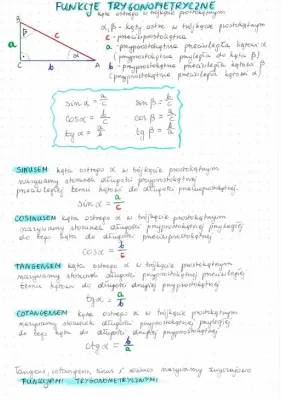 FUNKCJE TRYGONOMETRYCZNE
kąta ostrego w trójkącie prostokątnym
α, β - kąty ostre w trójkącie prostokątnym
c - przeciwprostokątna
a - przyprostokątna przeciwległa kątowi α
(przyprostokątna przyległa do kąta β)
b - przyprostokątna przeciwległa kątowi β
(przyprostokątna przyległa kątowi α)
B
β
a
c
α
C
b
A
sin α = a/c sin β = b/c
cos α = b/c cos β = a/c
tg α = a/b tg β = b/a
SINUSEM kąta ostrego α w trójkącie prostokątnym
nazywamy stosunek długości przyprostokątnej
przeciwległej temu kątowi do długości przeciwprostokątnej.
sin α = a/c
COSINUSEM kąta ostrego α w trójkącie prostokątnym
nazywamy stosunek długości przyprostokątnej przyległej
do tego kąta do długości przeciwprostokątnej
cos α = b/c
TANGENSEM kąta ostrego α w trójkącie prostokątnym
nazywamy stosunek długości przyprostokątnej przeciwległej
temu kątowi do długości drugiej przyprostokątnej
tg α = a/b
COTANGENSEM kąta ostrego α w trójkącie prostokątnym
nazywamy stosunek długości przyprostokątnej przyległej
do tego kąta do długości drugiej przyprostokątnej
ctg α = b/a
Tangens, cotangens, sinus i cosinus nazywamy
FUNKCJAMI TRYGONOMETRYCZNYMI